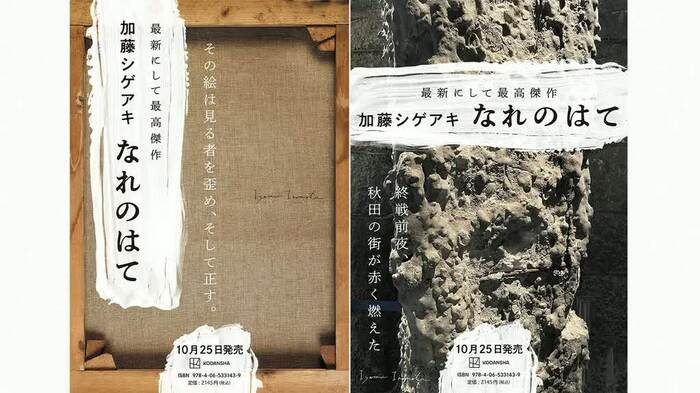 最新にして最高傑作
加藤シゲアキ なれのはて
その絵は見る者を歪め、そして正す。
10月25日発売
KODANSHA
ISBN 978-4-06-533143-9
定価:2145円(税込)
最新にして最高傑作
加藤シゲアキ なれのはて
終戦前夜、
秋田の街が赤く燃えた
10月25日発売
KODANSHA
ISBN 978-4-06-533143-9
定価:2145円(税込)